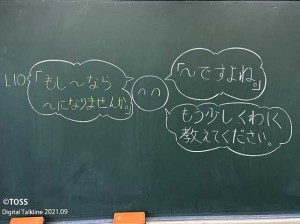 L10
「もし〜なら
〜になりませんか。」
「〜ですよね。」
もう少しくわしく
教えてください。
©TOSS
Digital Talkline 2021.09